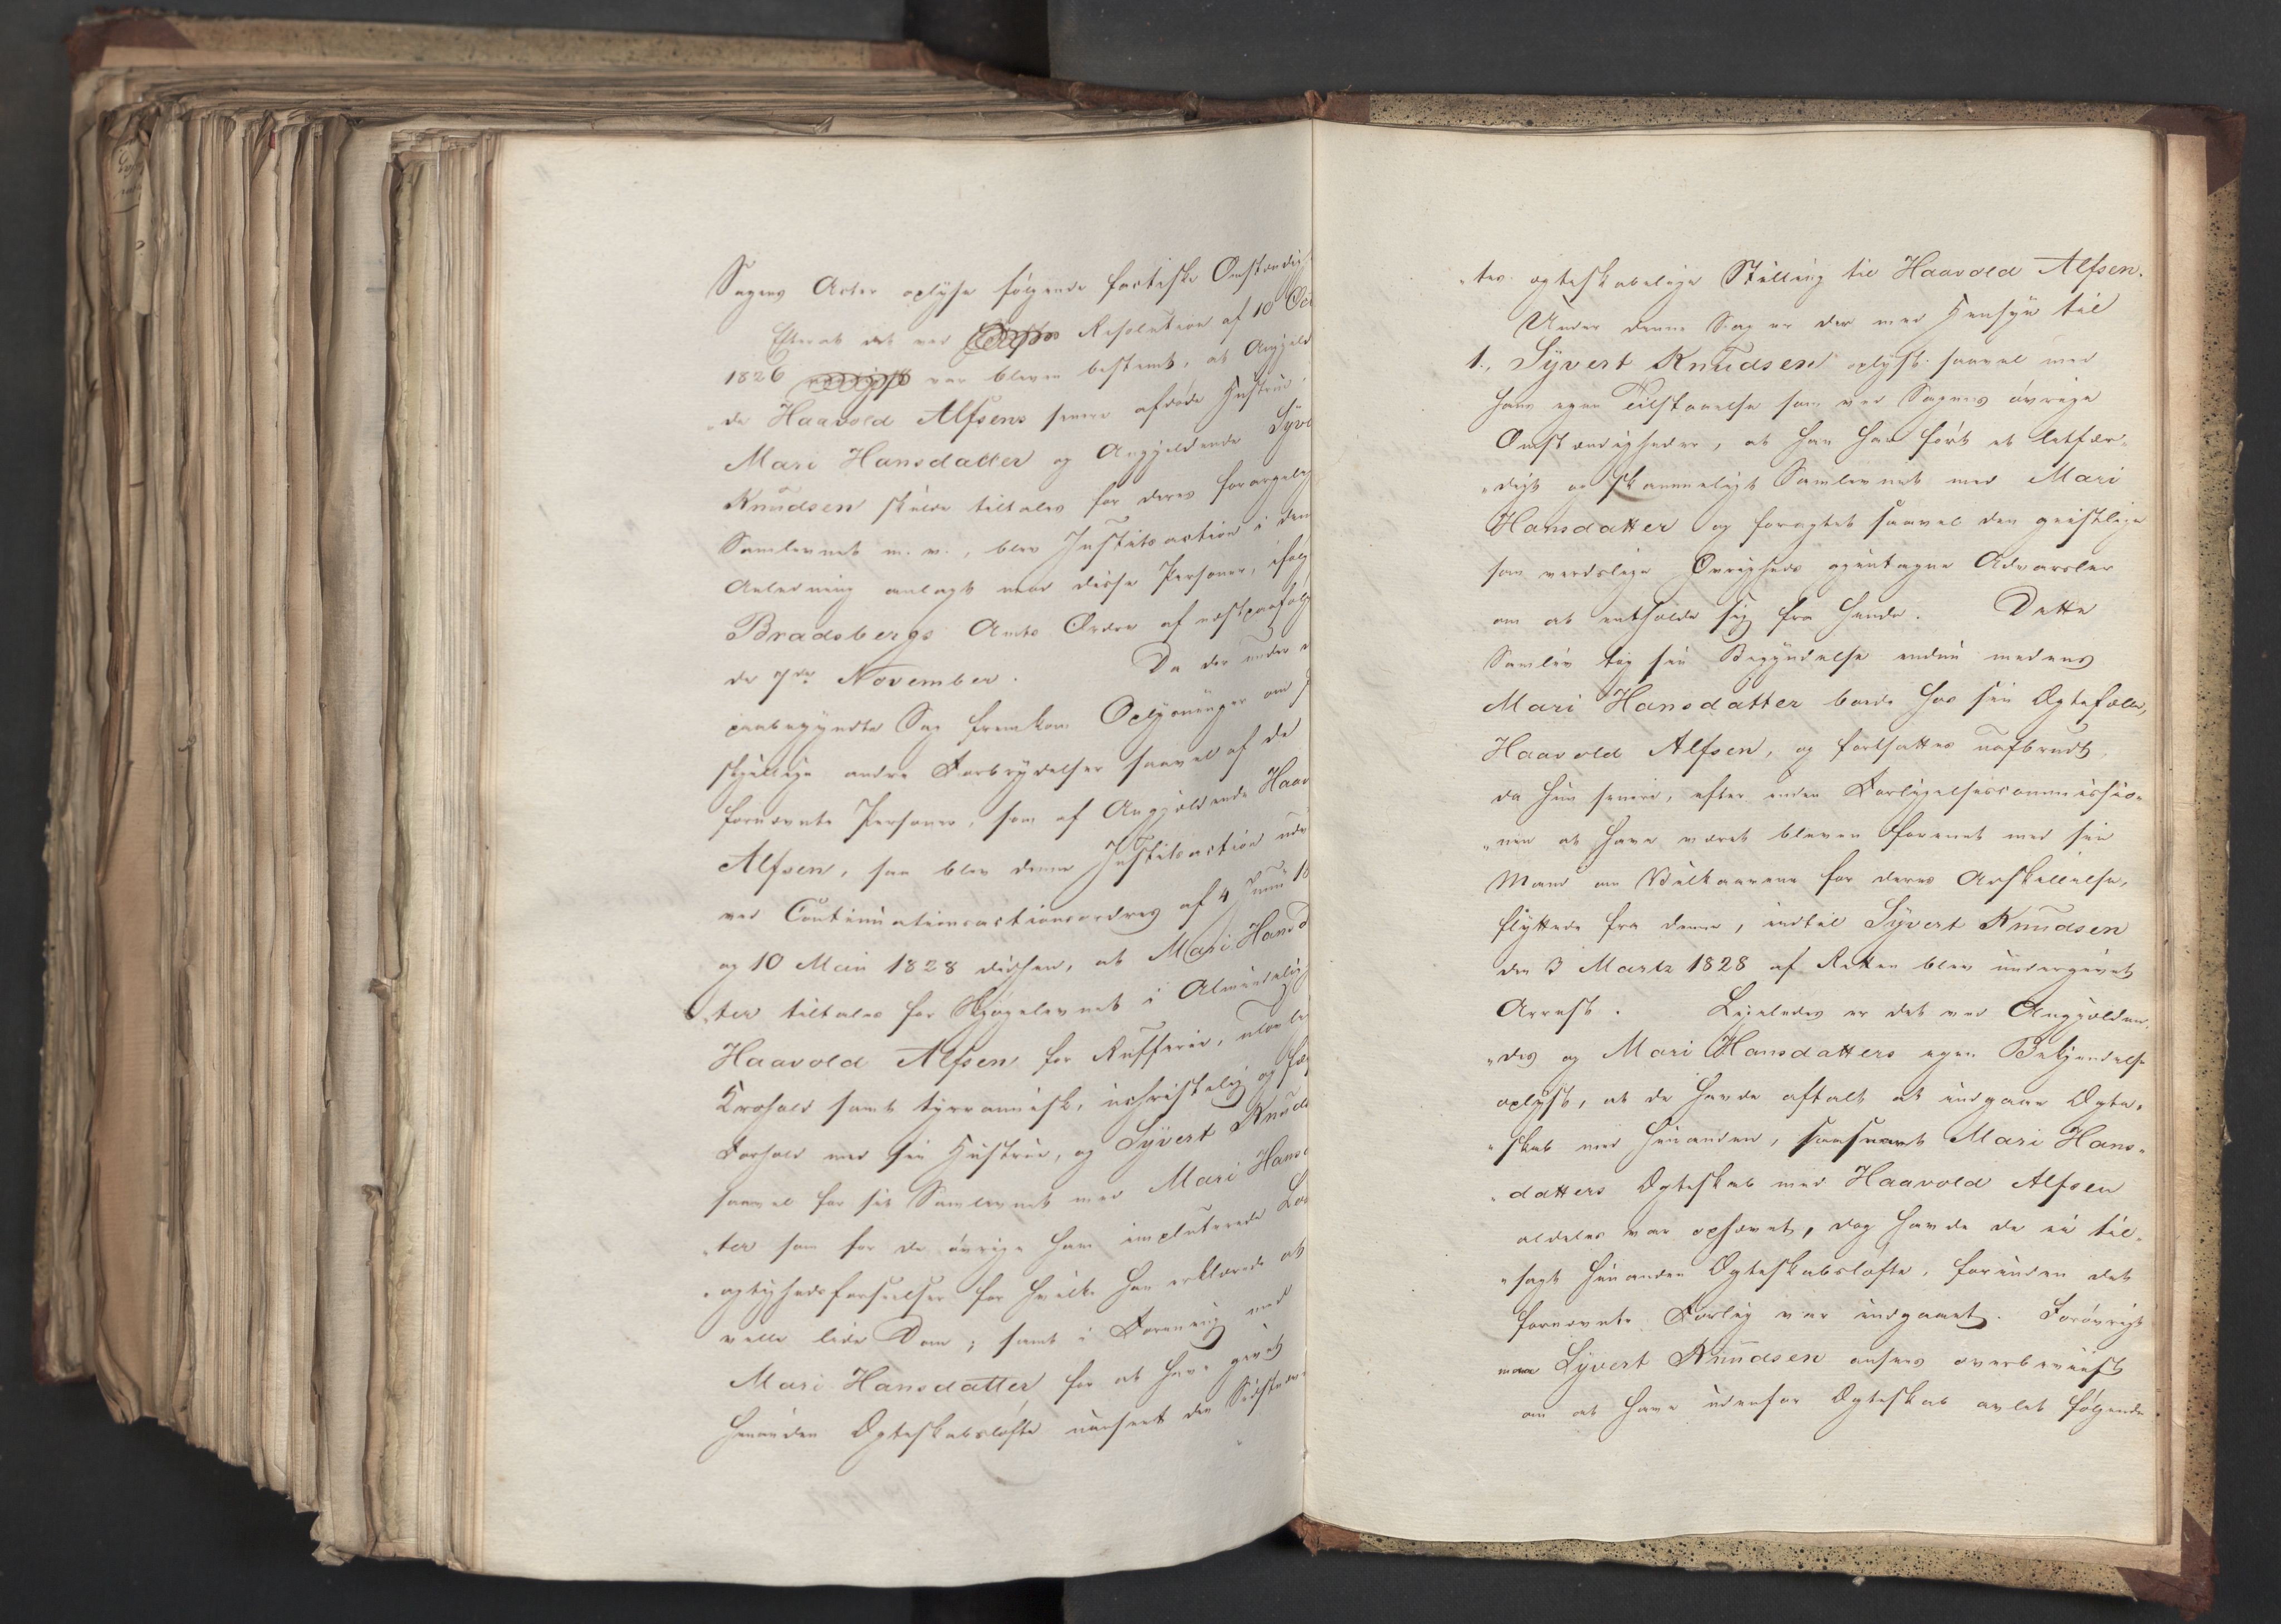 Sagens Acter oplyse følgende factiske Omstændig
Efterat det ved Resolution af 10 Oct
1826 var bleven bestemt, at Angjeld
„de Haavold Alfsens senere afdøde Hustrue
Mari Hansdatter og Angjeldende Syve
Knudsen skulde tiltales for deres forargelig
Samlevnet m. v., blev Justitsaction i den
Anledning anlagt mod disse Personer, ifølg
Bradsbergs Amts Ordre af næstpaafølg
de 7de November. Da der under d
paabegyndte Sag fremkom Oplysninger om f
skjellige andre Forbrydelser saavel af de
fornævnte Personer, som af Angjældende Haav
Alfsen, saa blev denne Justitsaction udv
ved Continuationsactionsordres af 4 Juni 18
og 10 Mai 1828 derhen, at Mari Hansd
„ter tiltales for Skjøgelevnet i Almindelig
Haavold Alfsen for Rufferie, ulovle
Kroehold samt tyrannisk, uchristelig og
Forhold mod sin Hustrue, og Syvert Knuds
saavel for sit Samlevnet med Mari Hansd
„ter som for de øvrige ham imputerede Lø
„agtighedsforseelser for hvilke han erklærede at
ville lide Dom; samt i Forening med
Mari Hansdatter, for at have givet
hinanden Ægteskabsløfte uanseet den Sidstnæv
„tes ægteskabelige Stilling til Haavold Alfsen.
Under denne Sag er der med Hensyn til
1., Syvert Knudsen oplyst saavel ved
hans egen Tilstaaelse som ved Sagens øvrige
Omstændigheder, at han har ført et letfær„
„digt og skammeligt Samlevnet med Mari
Hansdatter og foragtet saavel den geistlige
som verdslige Øvrigheds gjentagne Advarsler
om at entholde sig fra hende. Dette
Samliv tog sin Begyndelse endnu medens
Mari Hansdatter boede hos sin Ægtefælle,
Haavold Alfsen, og fortsattes uafbrudt,
da hun senere, efter inden Forligelsescommissio„
„nen at have været bleven forenet med sin
Mand om Vilkaarene for deres Adskillelse,
flyttede fra denne, indtil Syvert Knudsen
den 3 Marts 1828 af Retten blev undergivet
Arrest. Ligeledes er det ved Angjælden„
„des og Mari Hansdatters egen Bekjendelse
oplyst, at de havde aftalt at indgaae Ægte„
„skab med hinanden, saasnart Mari Hans„
„datters Ægteskab med Haavold Alfsen
aldeles var ophævet, dog havde de ei til„
„sagt hinanden Ægteskabsløfte, forinden det
fornævnte Forlig var indgaaet. Forøvrigt
maa Syvert Knudsen ansees overbeviist
om at have udenfor Ægteskab avlet følgende